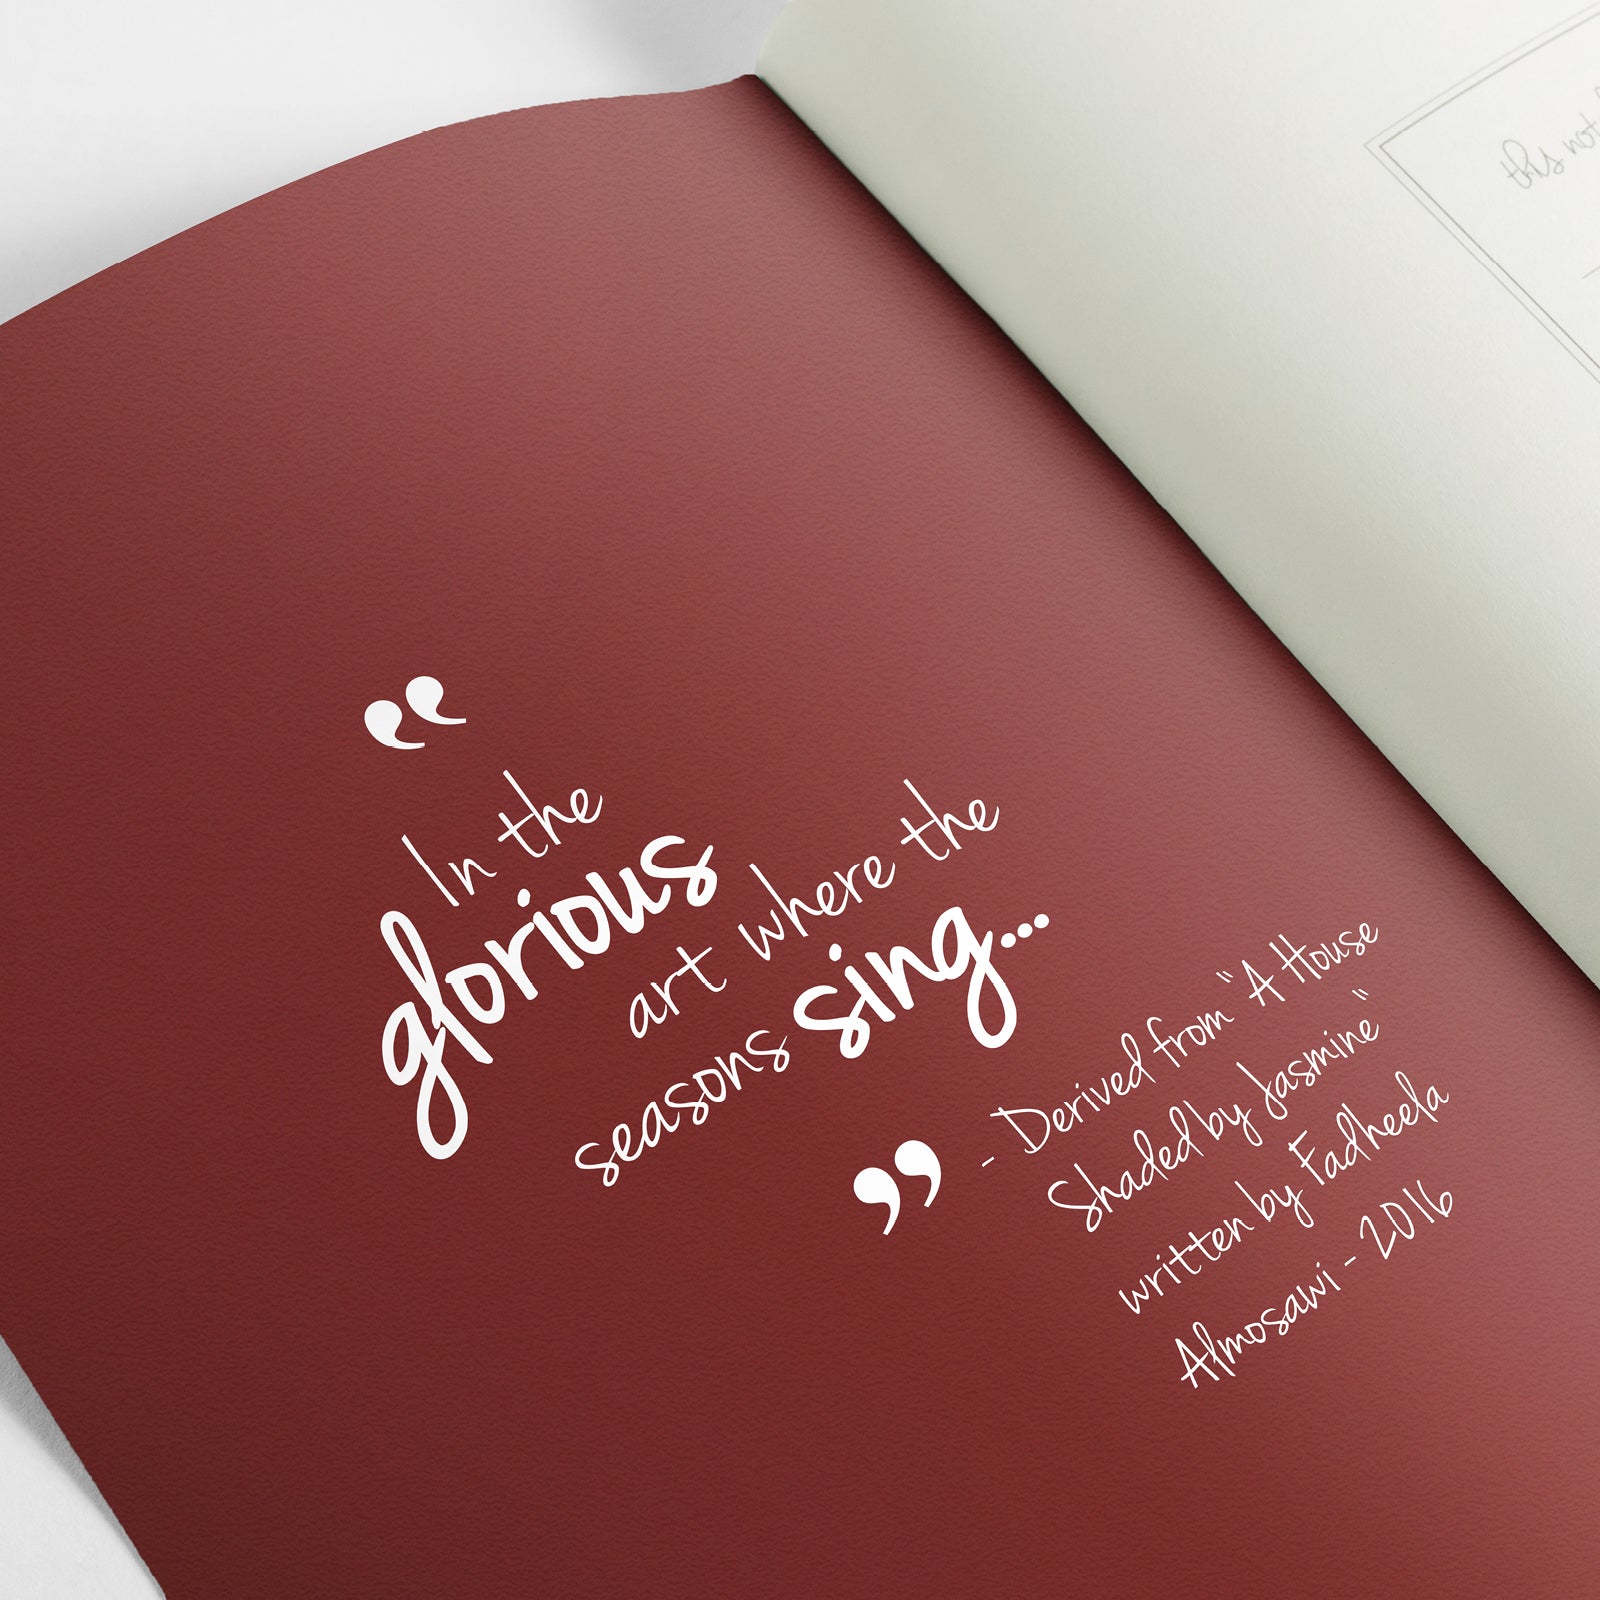 “
In the
glorious
art where the
seasons sing...
”
- Derived from "A House
Shaded by Jasmine"
written by Fadheela
Almosawi - 2016
this